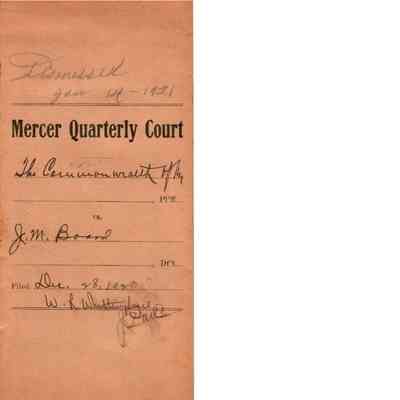 Dismissed
Jan 14 - 1921
Mercer Quarterly Court
The Commonwealth of Ky
Plff.
vs.
J. M. Board
Dft.
Filed Dec. 28, 1920
W.